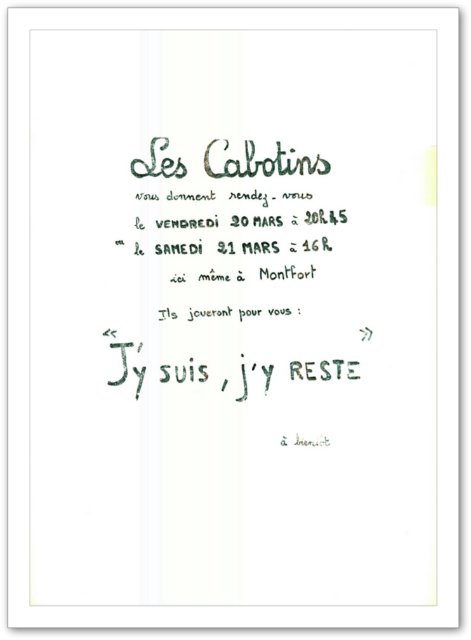 Les Cabotins
vous donnent rendez-vous
le VENDREDI 20 MARS à 20h45
ou le SAMEDI 21 MARS à 16h
ici même à Montfort
Ils joueront pour vous :
" J'y suis, j'y RESTE "
à bientôt